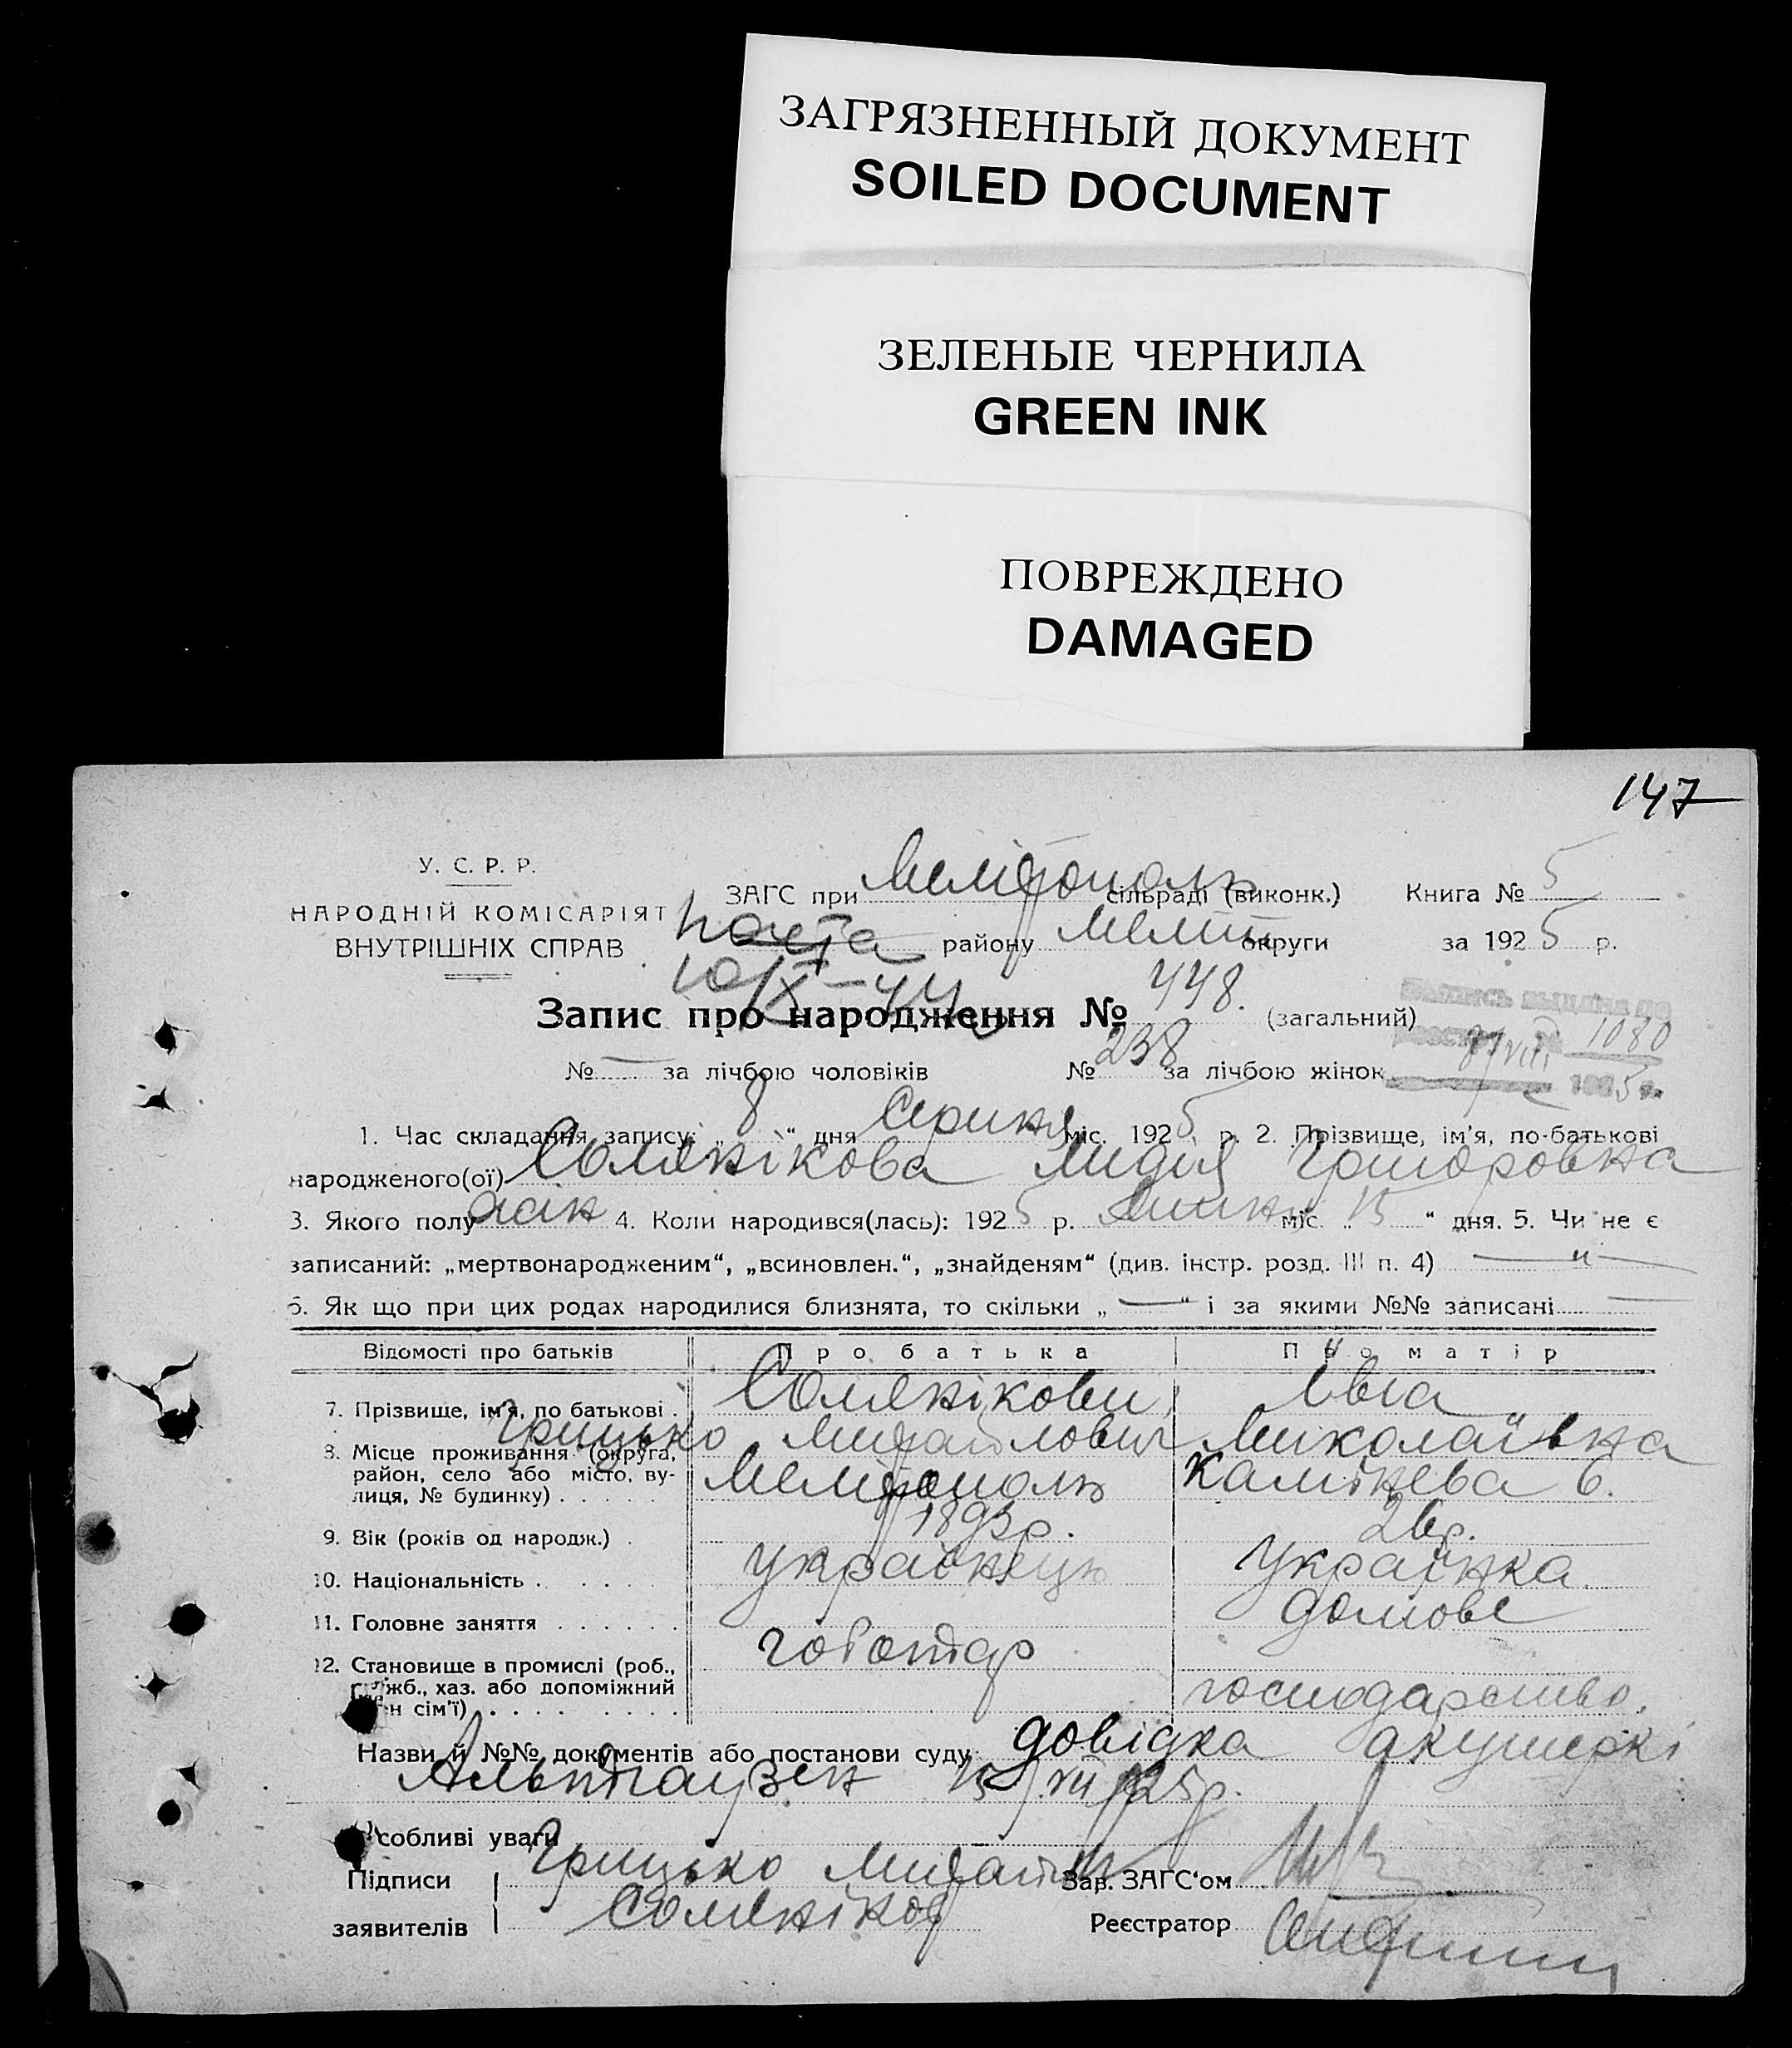 ЗАГРЯЗНЕННЫЙ ДОКУМЕНТ
SOILED DOCUMENT
ЗЕЛЕНЫЕ ЧЕРНИЛА
GREEN INK
ПОВРЕЖДЕНО
DAMAGED
147
У. С. Р. Р.
НАРОДНІЙ КОМІСАРІЯТ
ВНУТРІШНІХ СПРАВ
ЗАГС при Мелітополь сільраді (виконк.) Книга № 5
району Меліт округи за 1925 р.
Запис про народження № 448. (загальний)
1080
№ — за лічбою чоловіків № 238 за лічбою жінок
1. Час складання запису: „ 8 “ дня Серпня міс. 1925 р. 2. Прізвище, ім'я, по-батькові
народженого(ої) Солянікова Лидія Григоровна
3. Якого полу жін 4. Коли народився(лась): 1925 р. Липня міс. „ 15 “ дня. 5. Чи не є
записаний: „мертвонародженим“, „всиновлен.“, „знайденям“ (див. інстр. розд. III п. 4) — „ —
6. Як що при цих родах народилися близнята, то скільки „ — “ і за якими №№ записані —
Відомості про батьків Про батька Про матір
7. Прізвище, ім'я, по батькові . Солянікови Ївга
Грицько Михайлович Миколаївна
8. Місце проживання (округа, район, село або місто, вулиця, № будинку) . . . . . Мелітополь Камінева 6.
9. Вік (років од народж.) . 1893р. 26р.
10. Національність . . . . . українець Українка
11. Головне заняття . . . . . . домове
12. Становище в промислі (роб., служб., хаз. або допоміжний член сім'ї) . . . . . господарство.
Назви й №№ документів або постанови суду довідка акушеркі
Альтгаузен 15/VII 25р.
Особливі уваги
Підписи Грицько Зав. ЗАГС‘ом
заявителів Соляніков Реєстратор